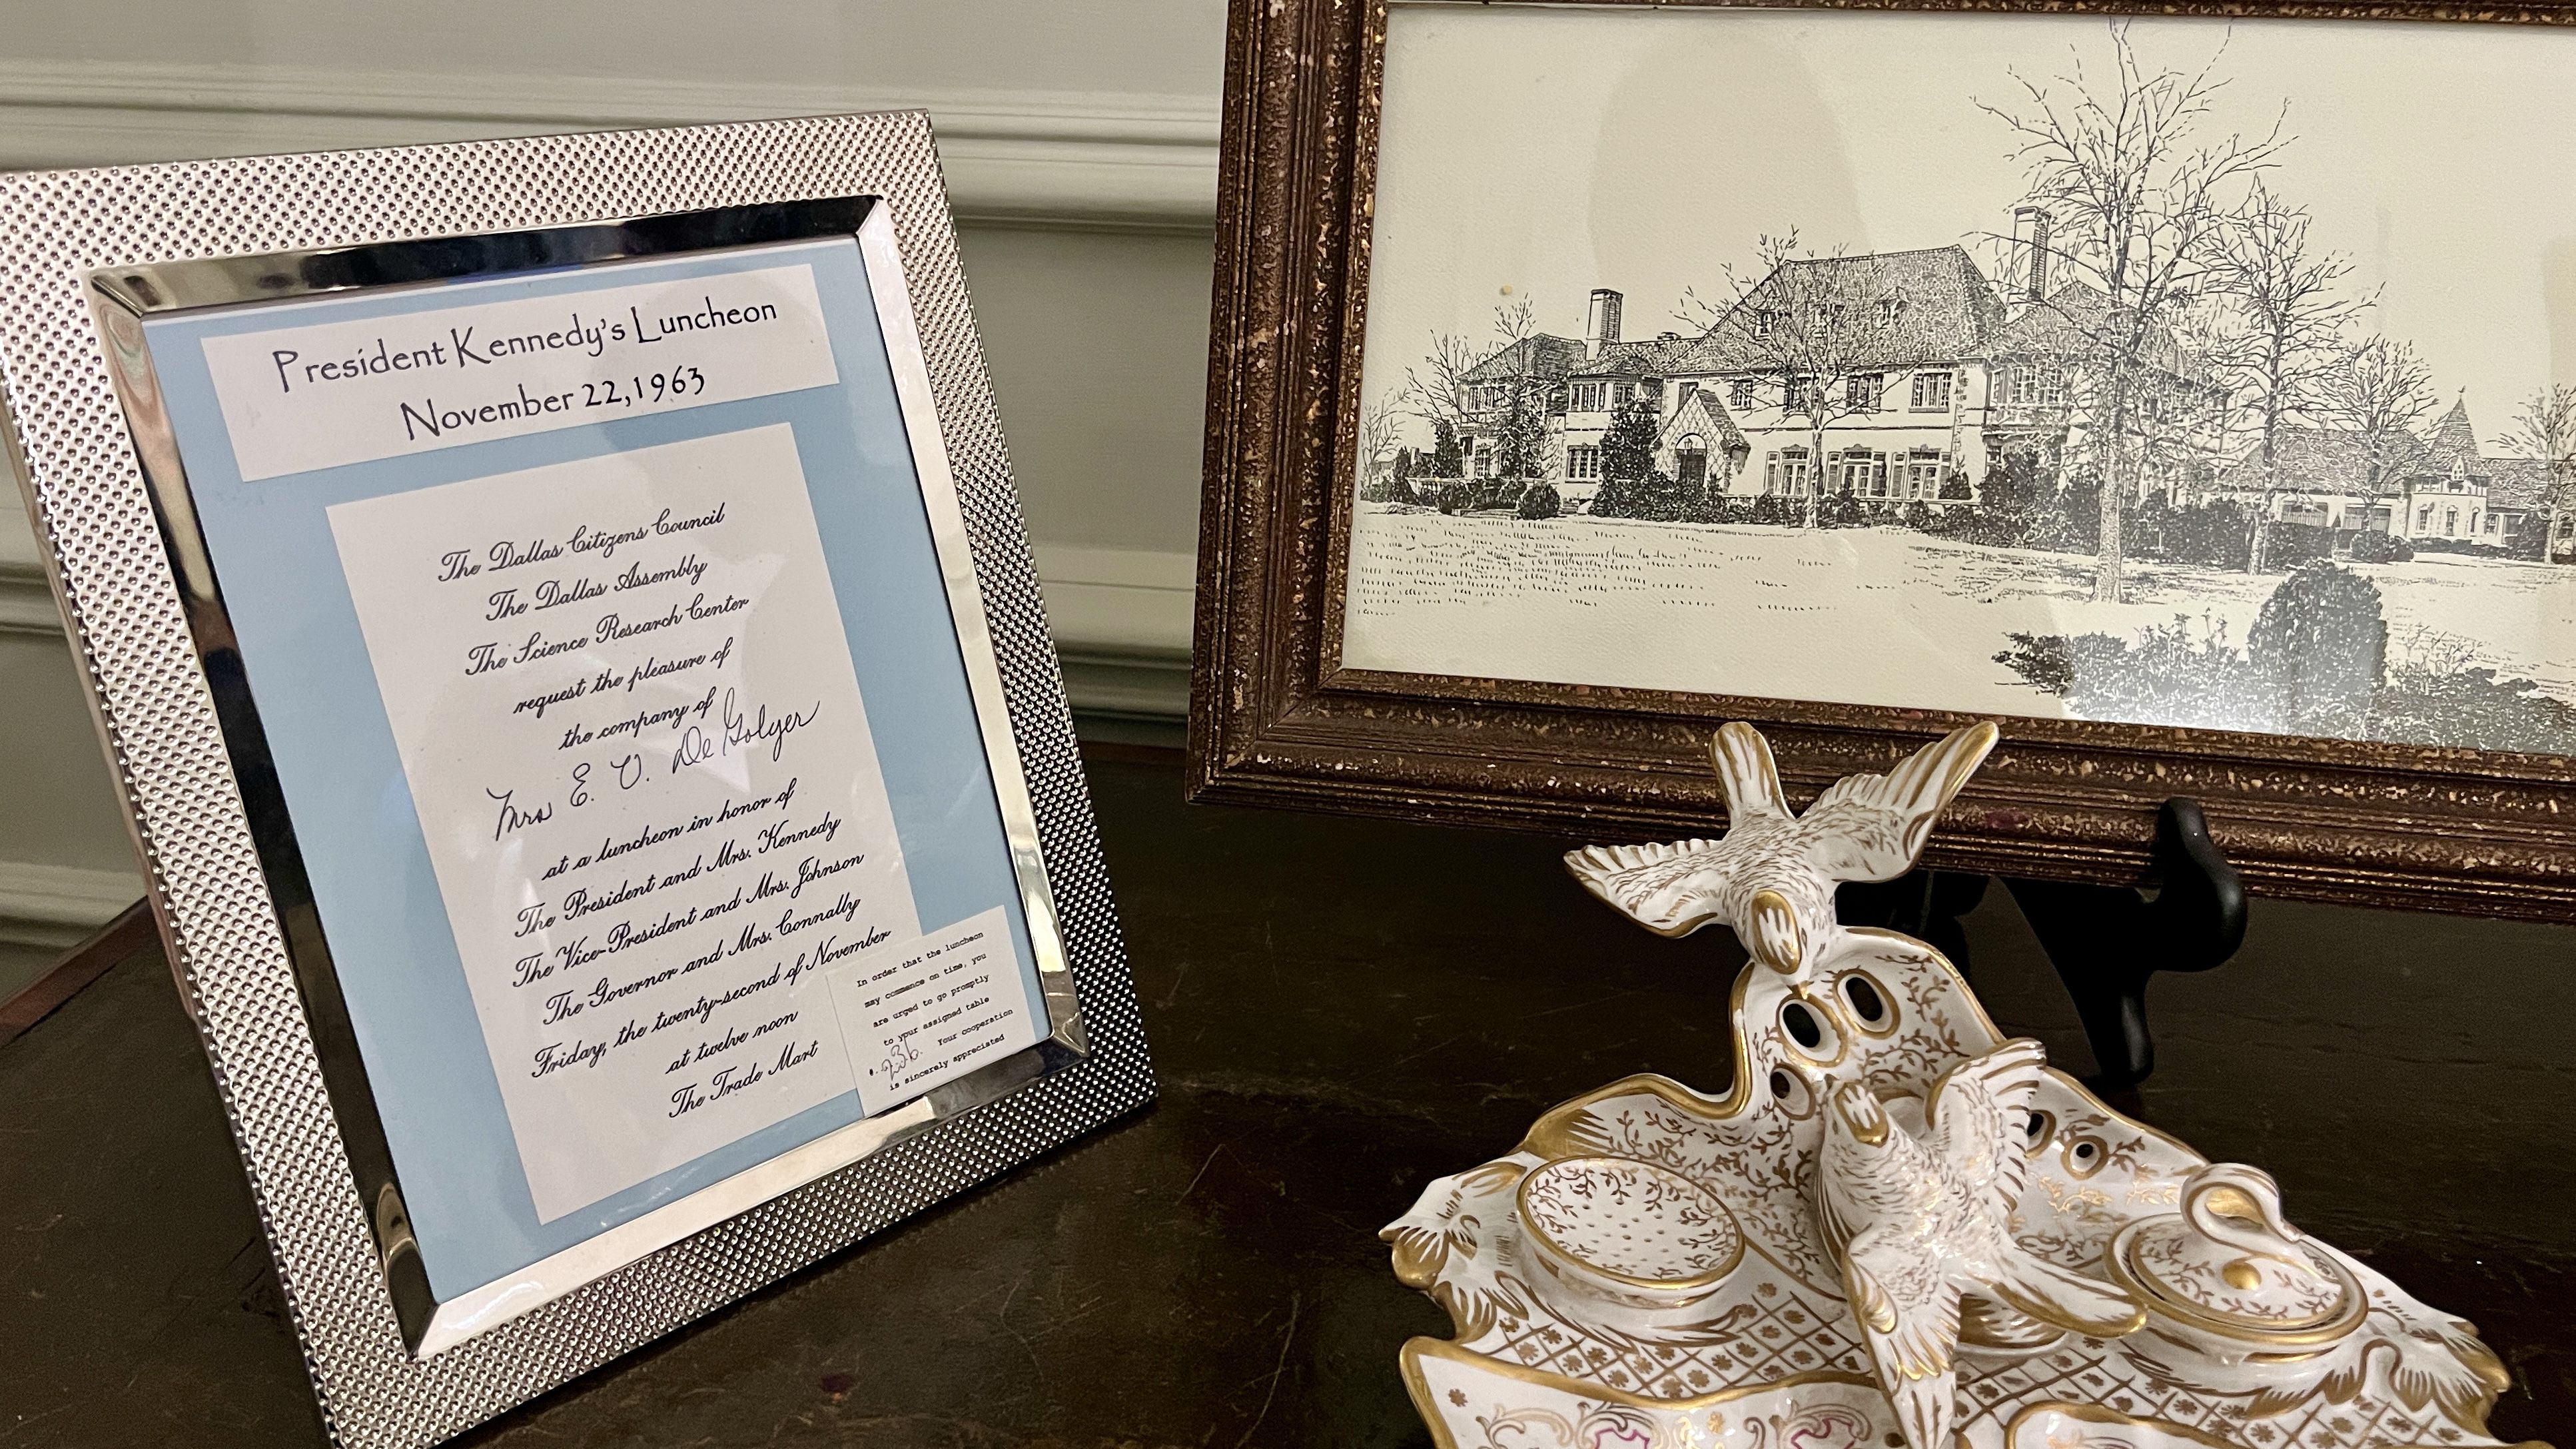 President Kennedy's Luncheon
November 22, 1963
The Dallas Citizens Council
The Dallas Assembly
The Science Research Center
request the pleasure of
the company of
Mrs E. V. De Golyer
at a luncheon in honor of
The President and Mrs. Kennedy
The Vice-President and Mrs. Johnson
The Governor and Mrs. Connally
Friday, the twenty-second of November
at twelve noon
The Trade Mart
In order that the luncheon
may commence on time, you
are urged to go promptly
to your assigned table
236. Your cooperation
is sincerely appreciated